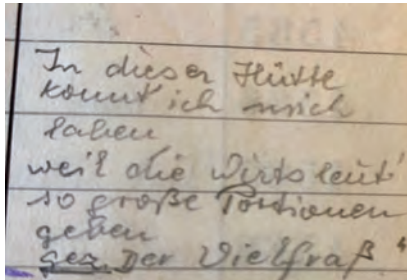 In dieser Hütte
konnt' ich mich
laben
weil die Wirtsleut'
so große Portionen
geben
gez. Der Vielfraß "